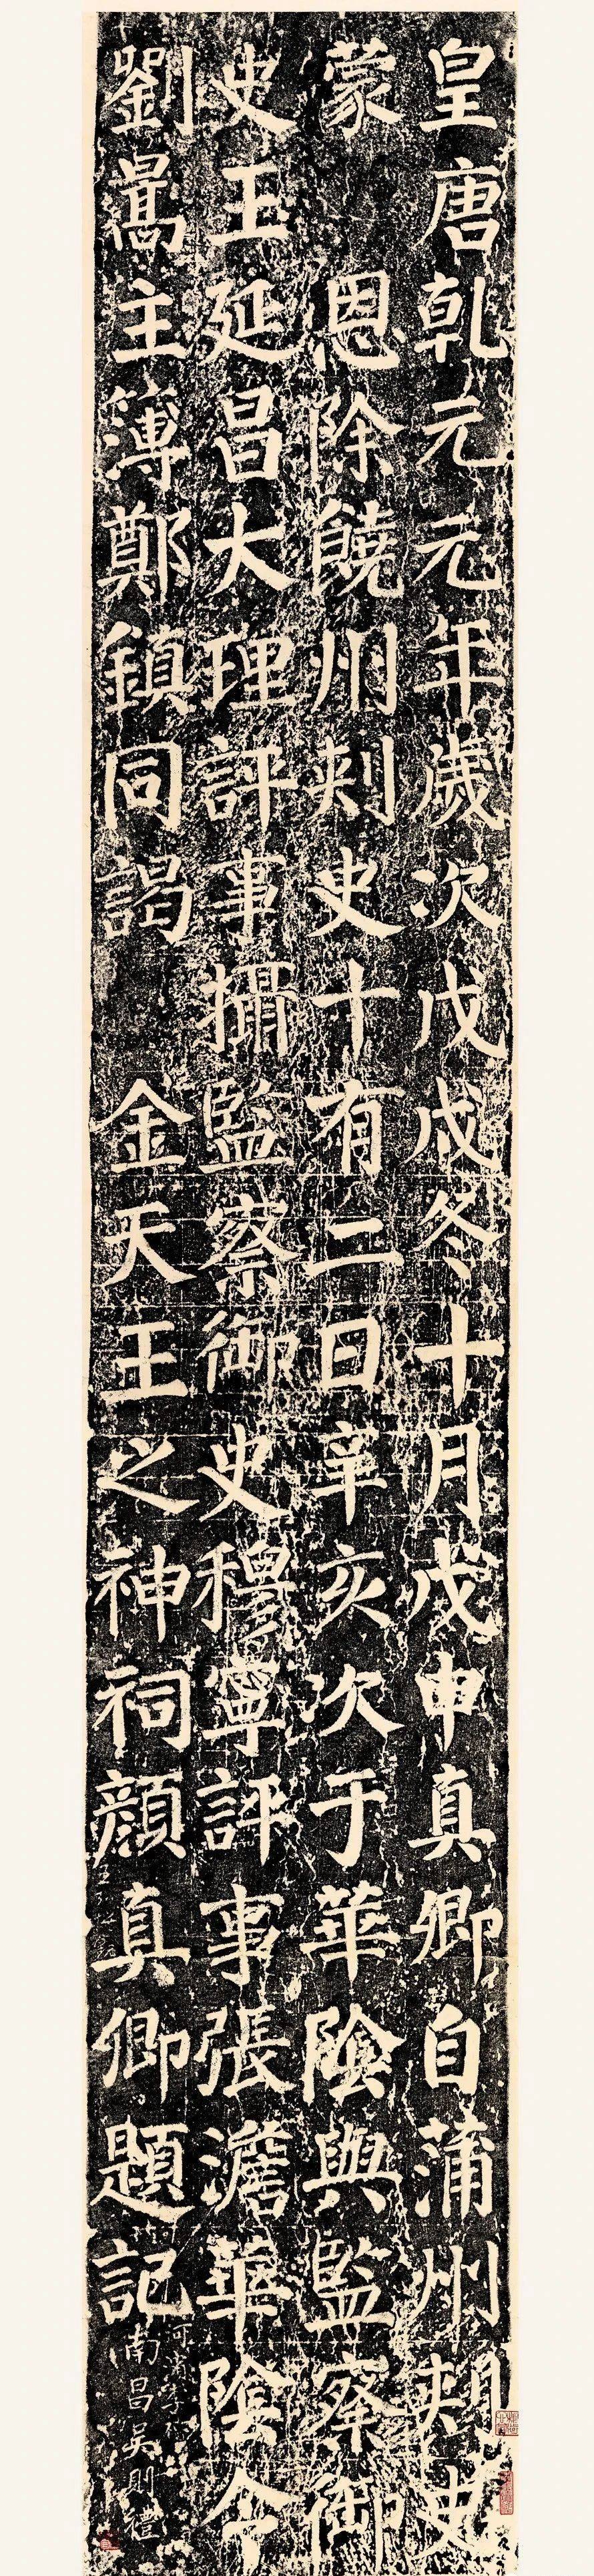 皇唐乾元元年歲次戊戌冬十月戊申真卿自蒲州刾史
蒙恩除饒州刾史十有二日辛亥次于華陰與監察御
史王延昌大理評事攝監察御史穆寧評事張澹華陰令
劉暠主簿鄭鎮同謁金天王之神祠顔真卿題記
南昌吳則禮